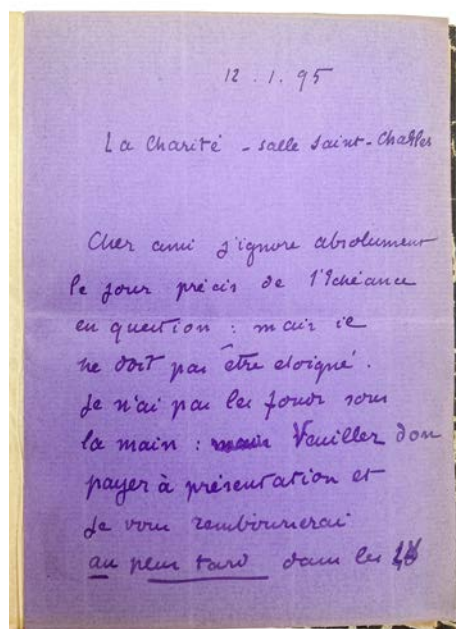 12.1.95
La Charité - salle Saint-Charles
Cher ami j'ignore absolument
le jour précis de l'Echéance
en question : mais il
ne doit pas être eloigné.
Je n'ai pas les fonds sous
la main : Veuillez don
payer à présentation et
Je vous rembourserai
au plus tard dans les